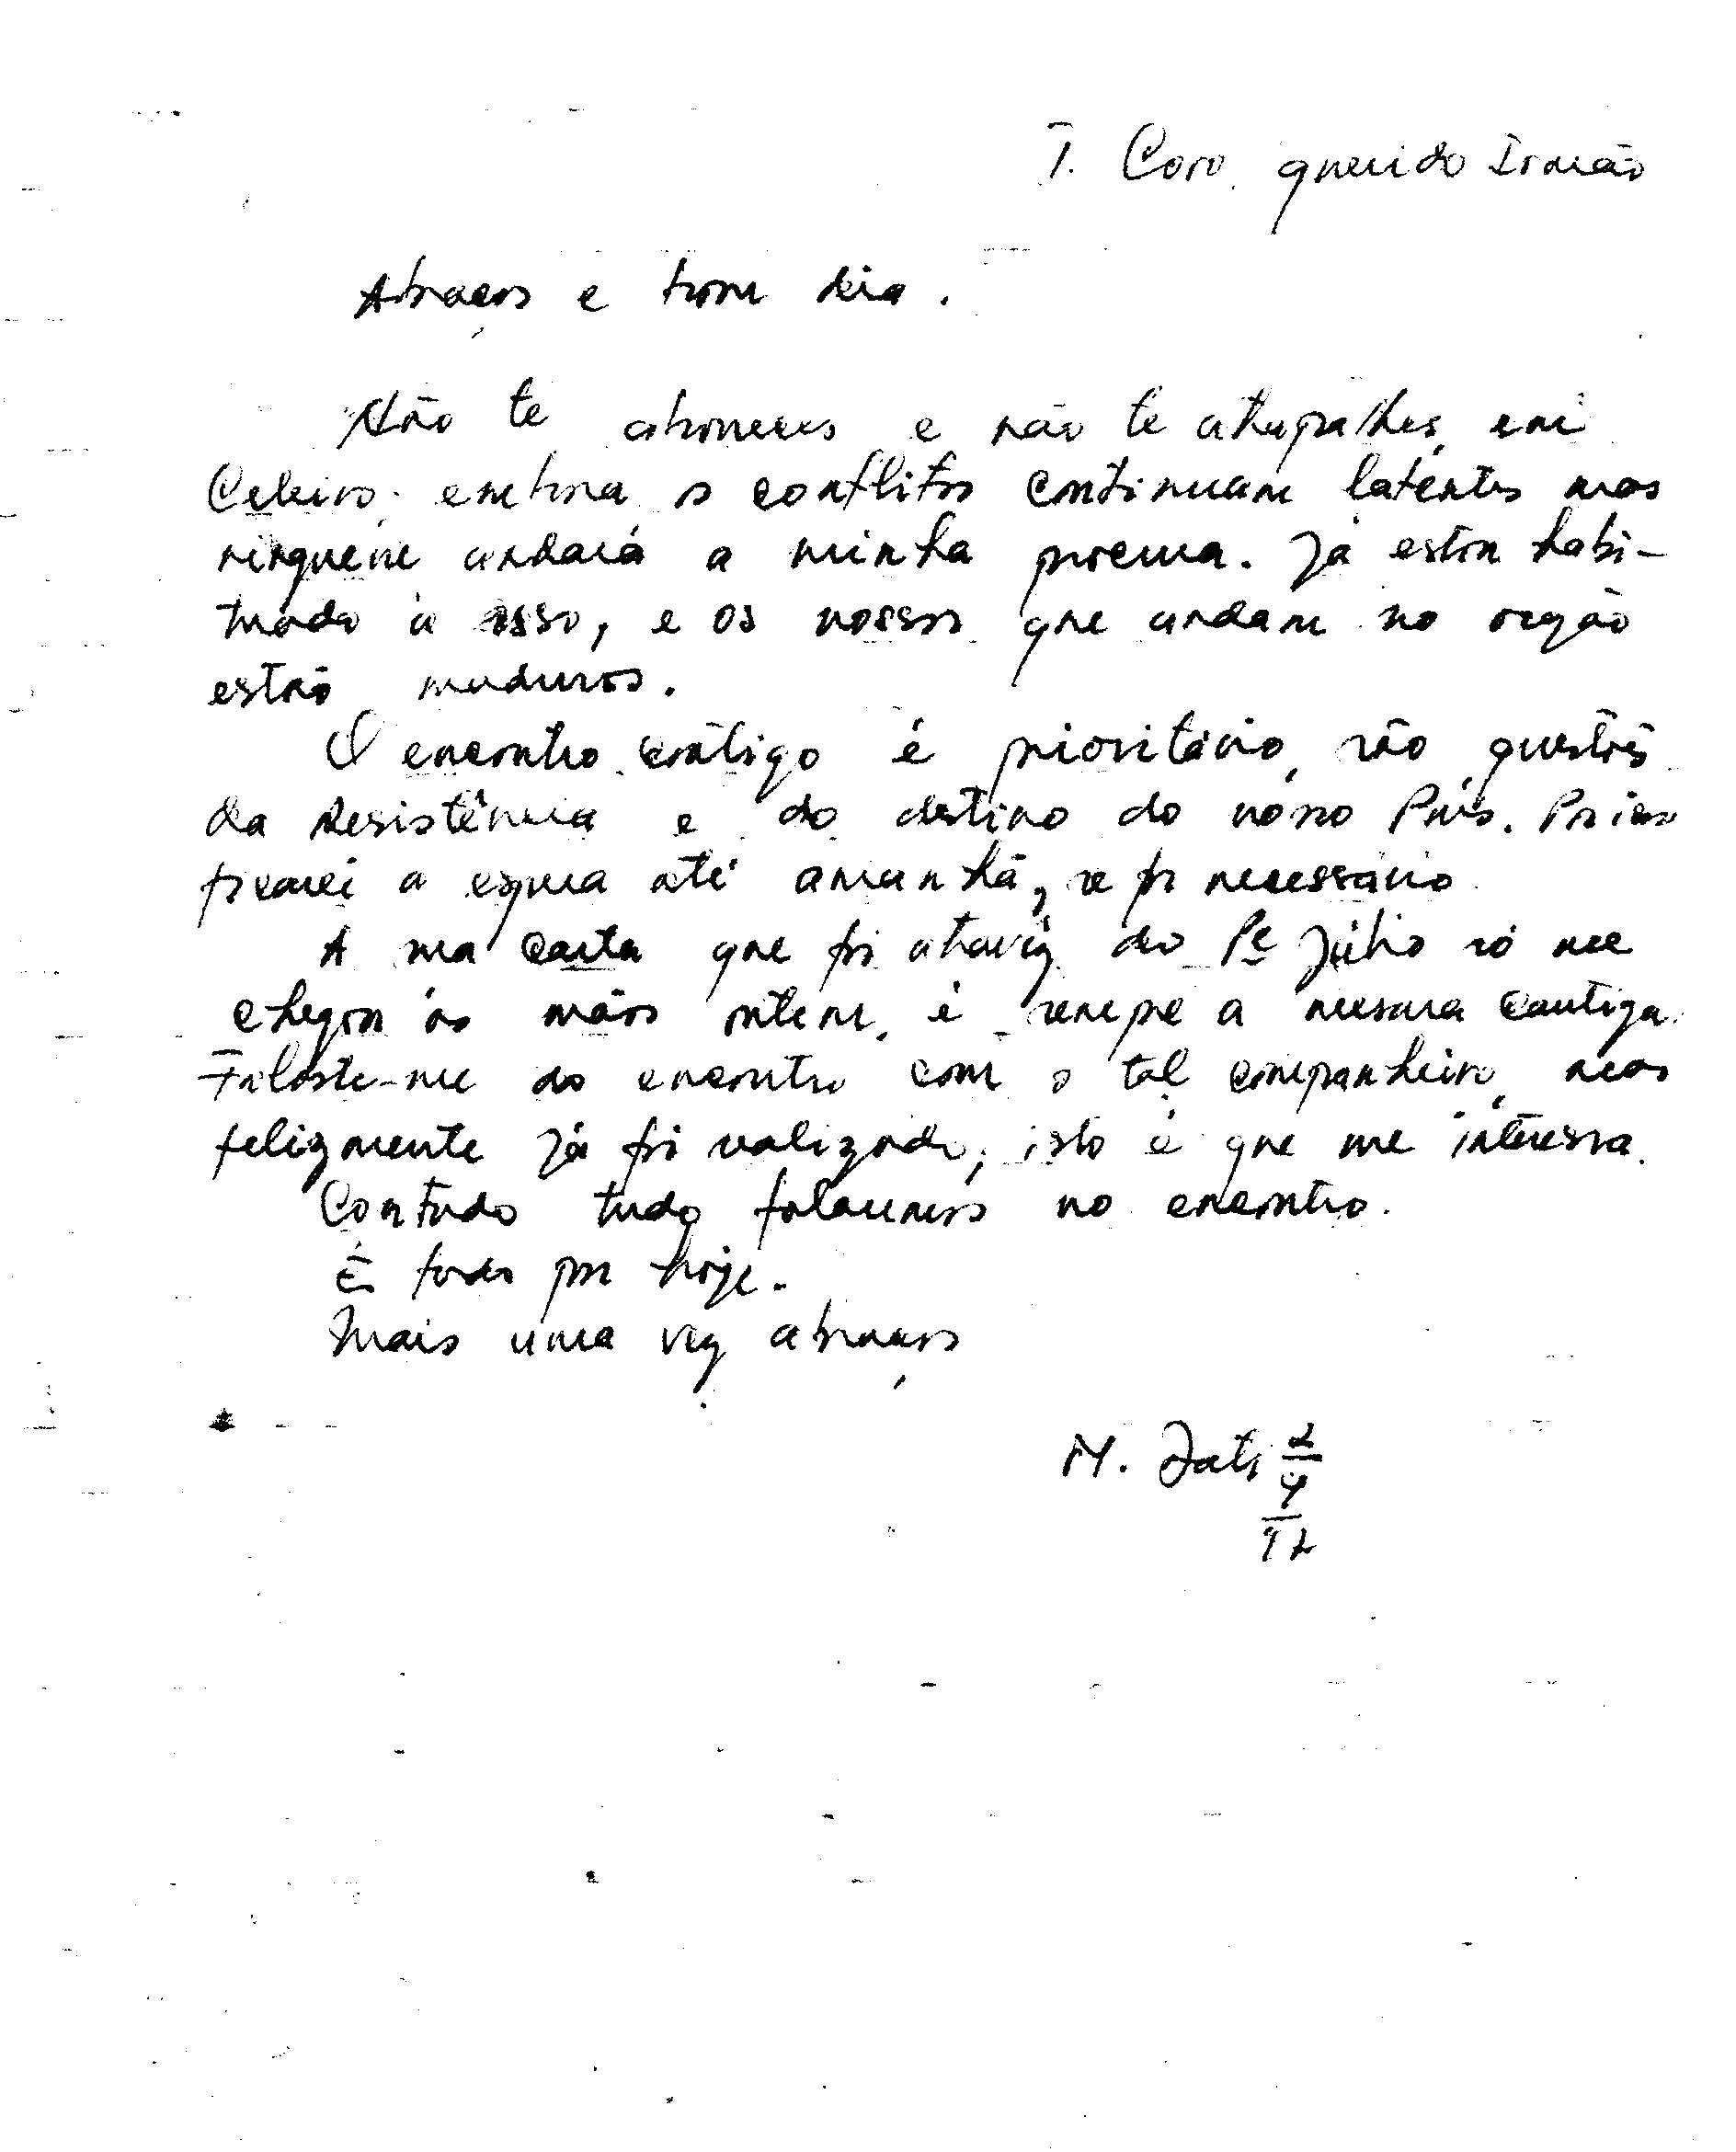 T. Caro querido Irmão
Abraços e bom dia.
Não te aborreces e não te atrapalhes, em
Celeiro. embora os conflitos continuam latentes mas
ninguem andará a minha procura. Já estou habi-
tuado a isso, e os nossos que andam no orgão
estão maduros.
O encontro contigo é prioritário, são questões
da Resistência e do destino do nosso País. Por isso
ficarei a espera até amanhã, se for necessário.
A sua carta que foi através do Pe Júlio só me
chegou ás mãos ontem, é sempre a mesma cantiga.
Falaste-me do encontro com o tal companheiro, mas
felizmente já foi realizado, isto é que me interessa.
Contudo tudo falaremos no encontro.
É todo por hoje.
Mais uma vez abraços
M. 2
4
92